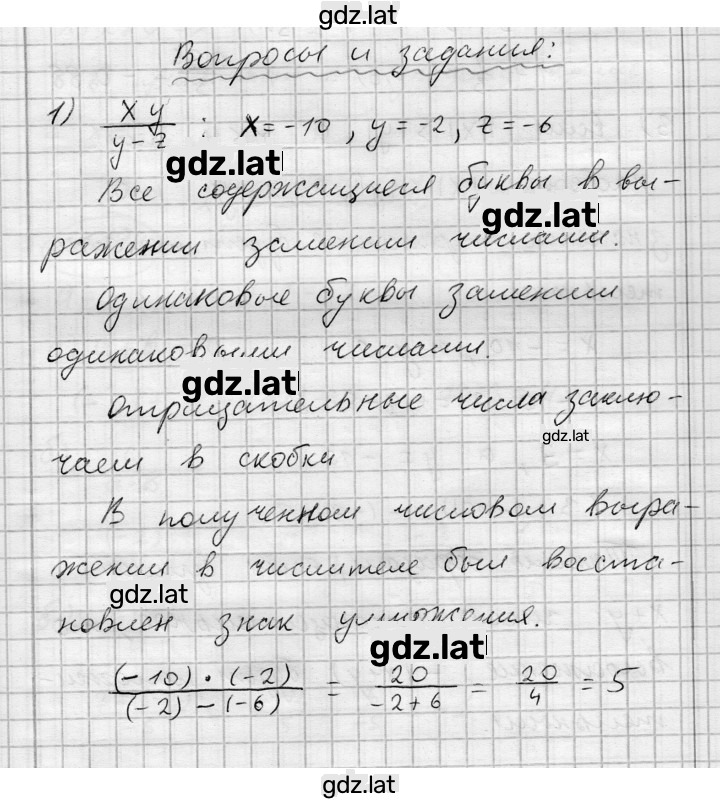 gdz.lat
Вопросы и задания:
1) xy/(y-z) : x=-10, y=-2, z=-6
gdz.lat
Все содержащиеся буквы в вы-
gdz.lat
ражении заменим числами.
Одинаковые буквы заменим
одинаковыми числами.
gdz.lat
Отрицательные числа заклю-
gdz.lat
чаем в скобки
В полученном числовом выра-
жении в числителе был восста-
gdz.lat
новлен знак умножения.
gdz.lat
(-10)·(-2)/((-2)-(-6)) = 20/(-2+6) = 20/4 = 5
gdz.lat